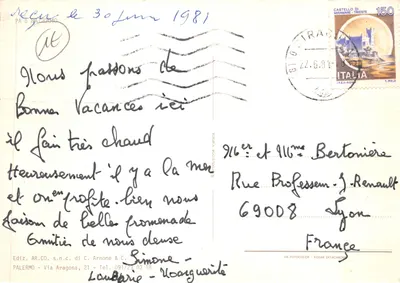 reçu le 30 juin 1981
1E
Nous passons de
Bonnes Vacances ici
il fait très chaud
Heureusement il y a la mer
et on en profite bien nous
faisons de belles promenade
Amitiés de nous deux
Simone -
Marguerite
CASTELLO DI
MIRAMARE - TRIESTE
150
ITALIA
Mlle et Mme Bertonière
Rue Professeur-J-Renault
69008 Lyon
France
Ediz. AR.CO. s.n.c. di C. Arnone & C.
PALERMO - Via Anapino, 21 - Tel.